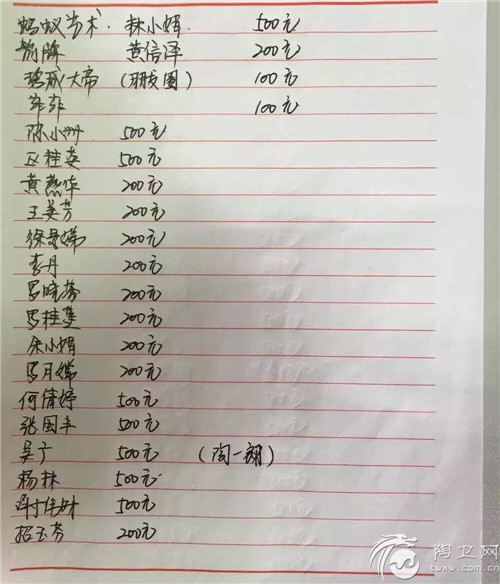 蚂蚁艺术. 林小娟. 500元
箭牌 黄信泽 200元
大帝 (朋友圈) 100元
100元
陈小 500元
区桂英 500元
黄燕华 200元
王美芳 200元
徐景娣 200元
李丹 200元
罗晓芬 200元
罗桂 200元
余小娟 200元
罗月嫦 200元
何倩婷 500元
张国丰 500元
吴 500元 (陶一郎)
杨林 500元
500元
招玉芬 200元
陶卫网
www.com.cn